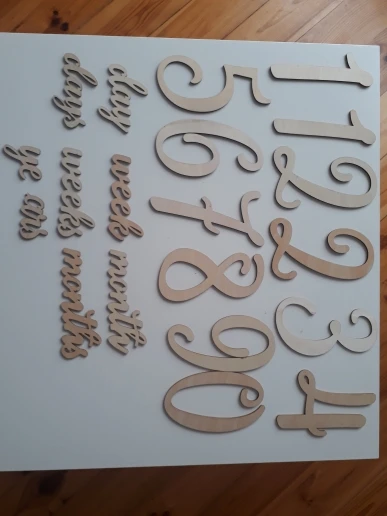 1 1 2 2 3 4
5 6 7 8 9 0
day week month
days weeks months
ye ars